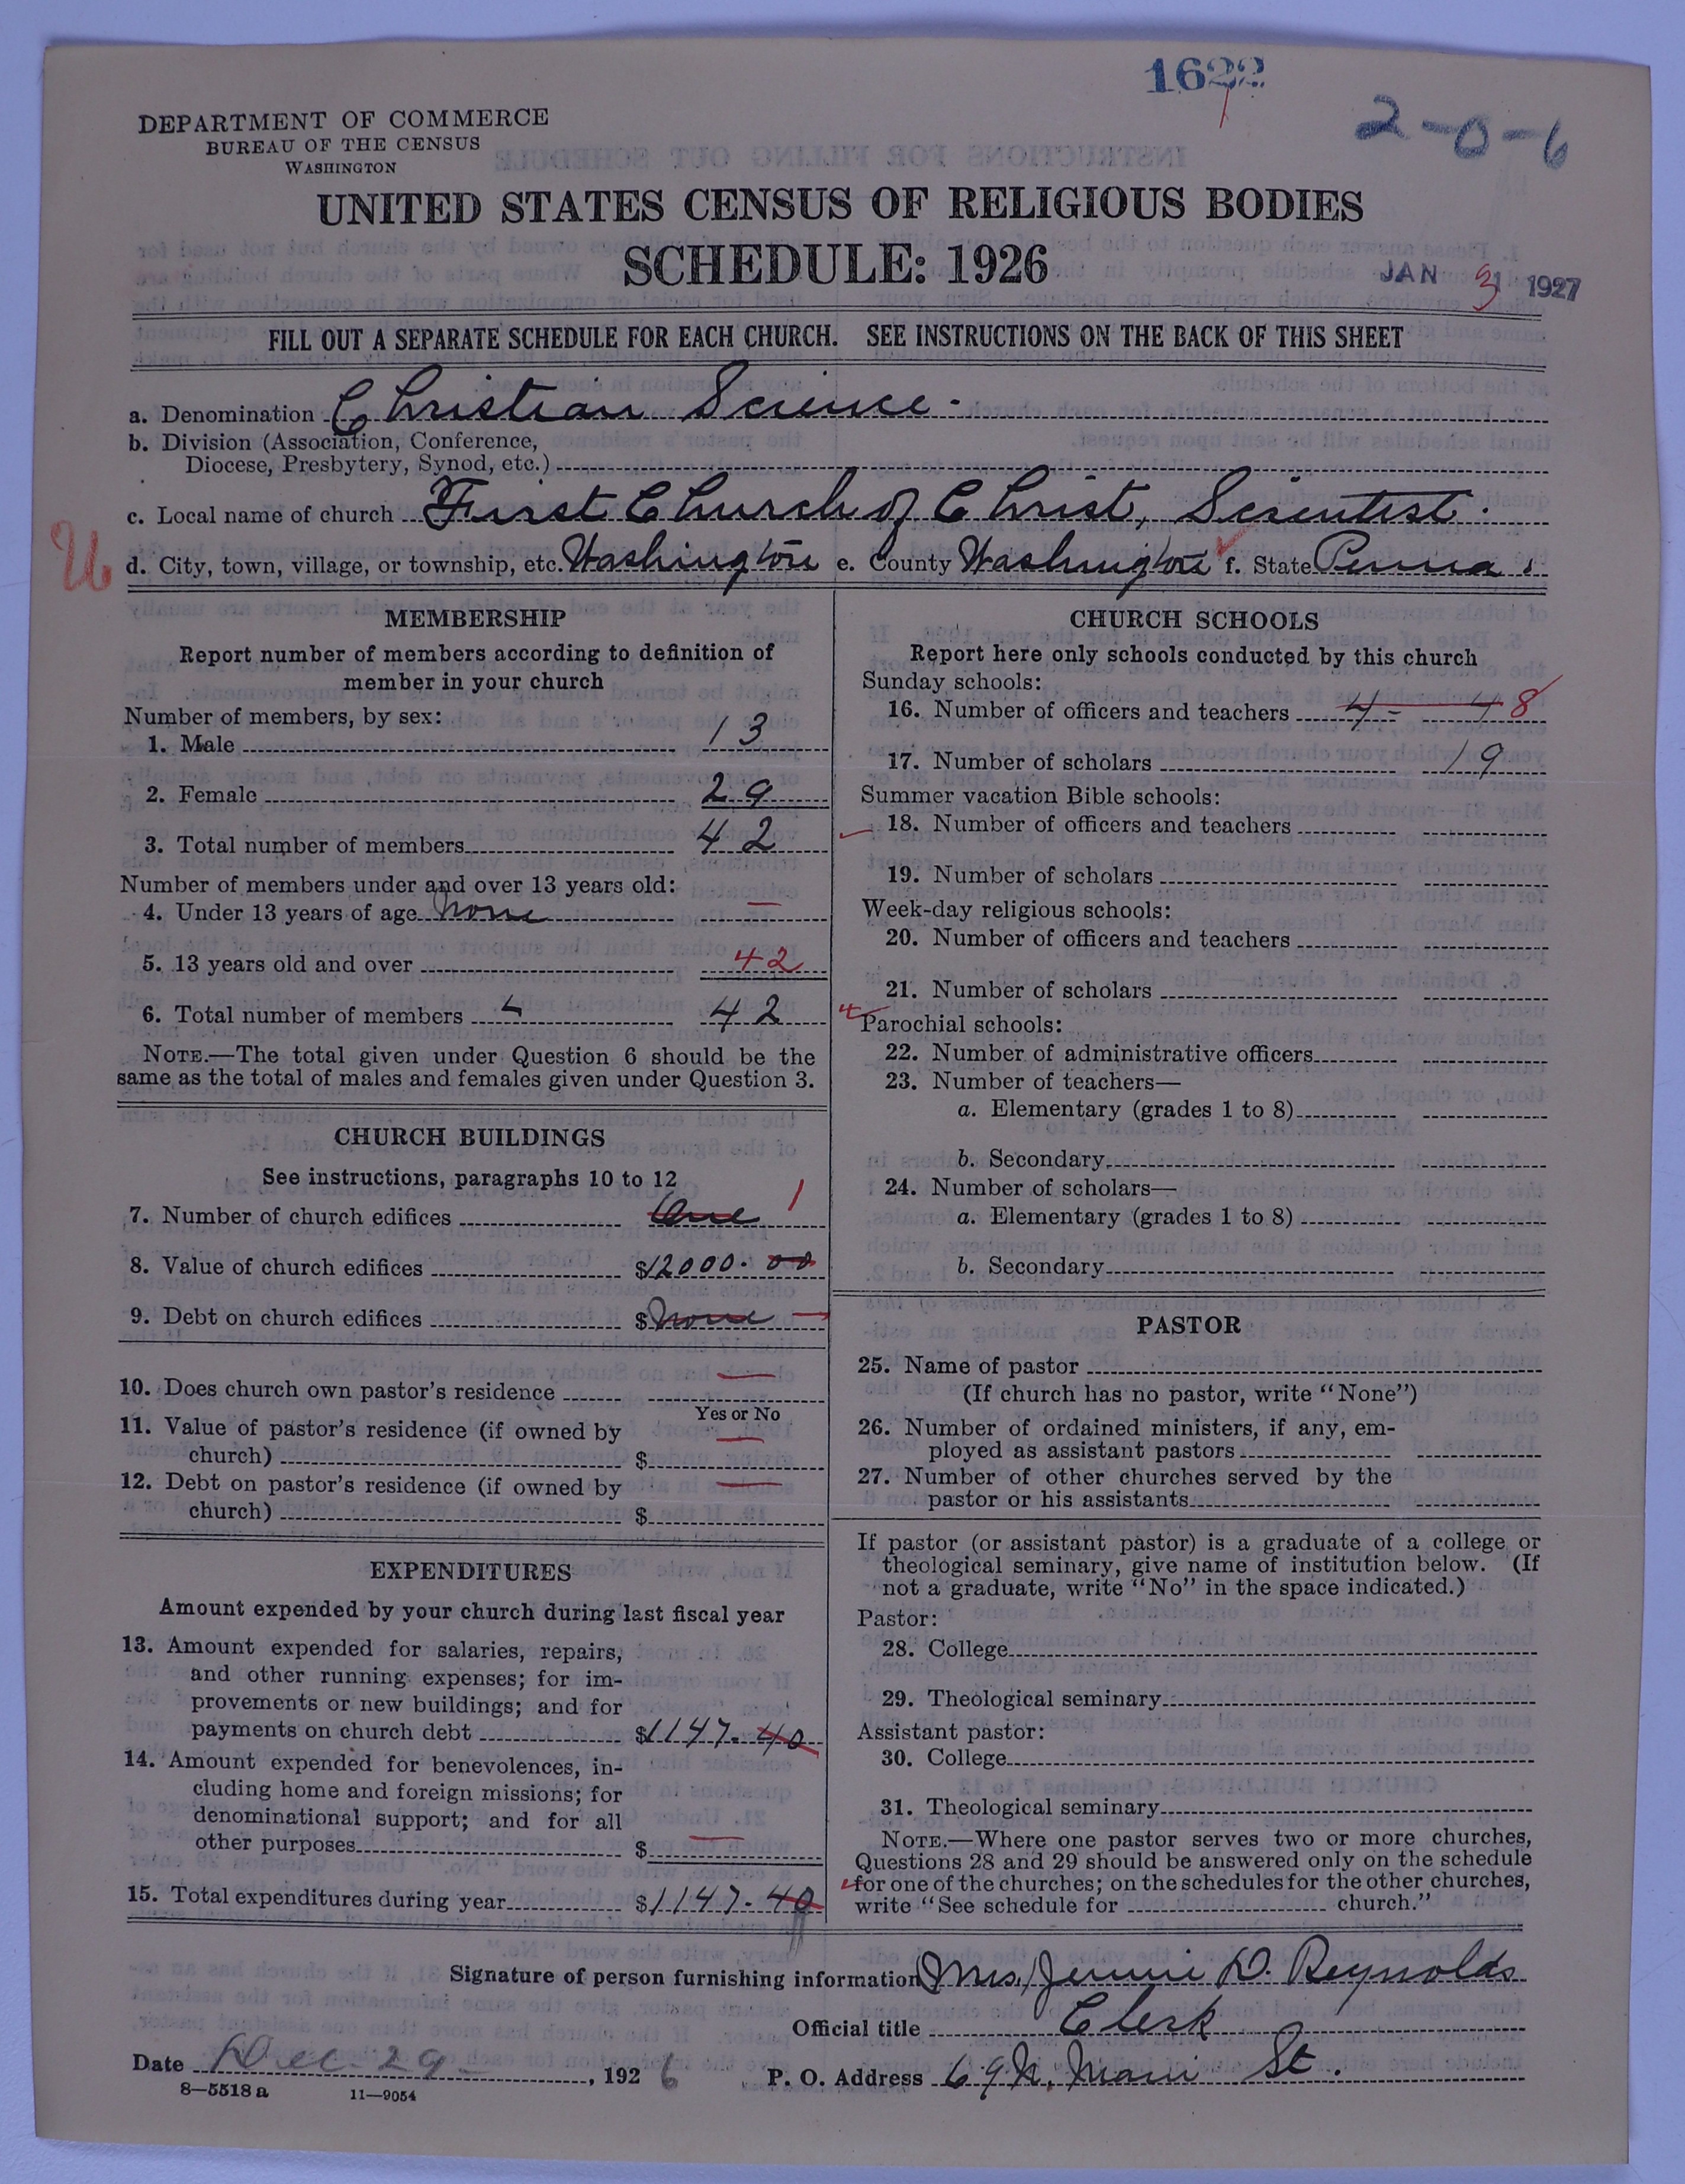 1622
2-0-6
DEPARTMENT OF COMMERCE
BUREAU OF THE CENSUS
WASHINGTON
UNITED STATES CENSUS OF RELIGIOUS BODIES
SCHEDULE: 1926
JAN 31 1927
FILL OUT A SEPARATE SCHEDULE FOR EACH CHURCH. SEE INSTRUCTIONS ON THE BACK OF THIS SHEET
a. Denomination Christian Science.
b. Division (Association, Conference,
Diocese, Presbytery, Synod, etc.)
c. Local name of church First Church of Christ, Scientist.
U
d. City, town, village, or township, etc. Washington e. County Washington f. State Penna.
MEMBERSHIP
Report number of members according to definition of
member in your church
Number of members, by sex:
1. Male 13
2. Female 29
3. Total number of members 42
Number of members under and over 13 years old:
4. Under 13 years of age None —
5. 13 years old and over 42
6. Total number of members 42
NOTE.—The total given under Question 6 should be the
same as the total of males and females given under Question 3.
CHURCH BUILDINGS
See instructions, paragraphs 10 to 12
7. Number of church edifices One 1
8. Value of church edifices $12000.00
9. Debt on church edifices $None —
10. Does church own pastor's residence —
Yes or No
11. Value of pastor's residence (if owned by
church) $ —
12. Debt on pastor's residence (if owned by
church) $ —
EXPENDITURES
Amount expended by your church during last fiscal year
13. Amount expended for salaries, repairs,
and other running expenses; for im-
provements or new buildings; and for
payments on church debt $1147.40
14. Amount expended for benevolences, in-
cluding home and foreign missions; for
denominational support; and for all
other purposes $ —
15. Total expenditures during year $1147.40
CHURCH SCHOOLS
Report here only schools conducted by this church
Sunday schools:
16. Number of officers and teachers 4 - 4 8
17. Number of scholars 19
Summer vacation Bible schools:
18. Number of officers and teachers
19. Number of scholars
Week-day religious schools:
20. Number of officers and teachers
21. Number of scholars
Parochial schools:
22. Number of administrative officers
23. Number of teachers—
a. Elementary (grades 1 to 8)
b. Secondary
24. Number of scholars—
a. Elementary (grades 1 to 8)
b. Secondary
PASTOR
25. Name of pastor
(If church has no pastor, write "None")
26. Number of ordained ministers, if any, em-
ployed as assistant pastors
27. Number of other churches served by the
pastor or his assistants
If pastor (or assistant pastor) is a graduate of a college or
theological seminary, give name of institution below. (If
not a graduate, write "No" in the space indicated.)
Pastor:
28. College
29. Theological seminary
Assistant pastor:
30. College
31. Theological seminary
NOTE.—Where one pastor serves two or more churches,
Questions 28 and 29 should be answered only on the schedule
for one of the churches; on the schedules for the other churches,
write "See schedule for church."
Signature of person furnishing information Mrs. Jennie D. Reynolds
Official title Clerk
Date Dec. 29, 1926 P. O. Address 69 N. Main St.
8—5518 a 11—9054